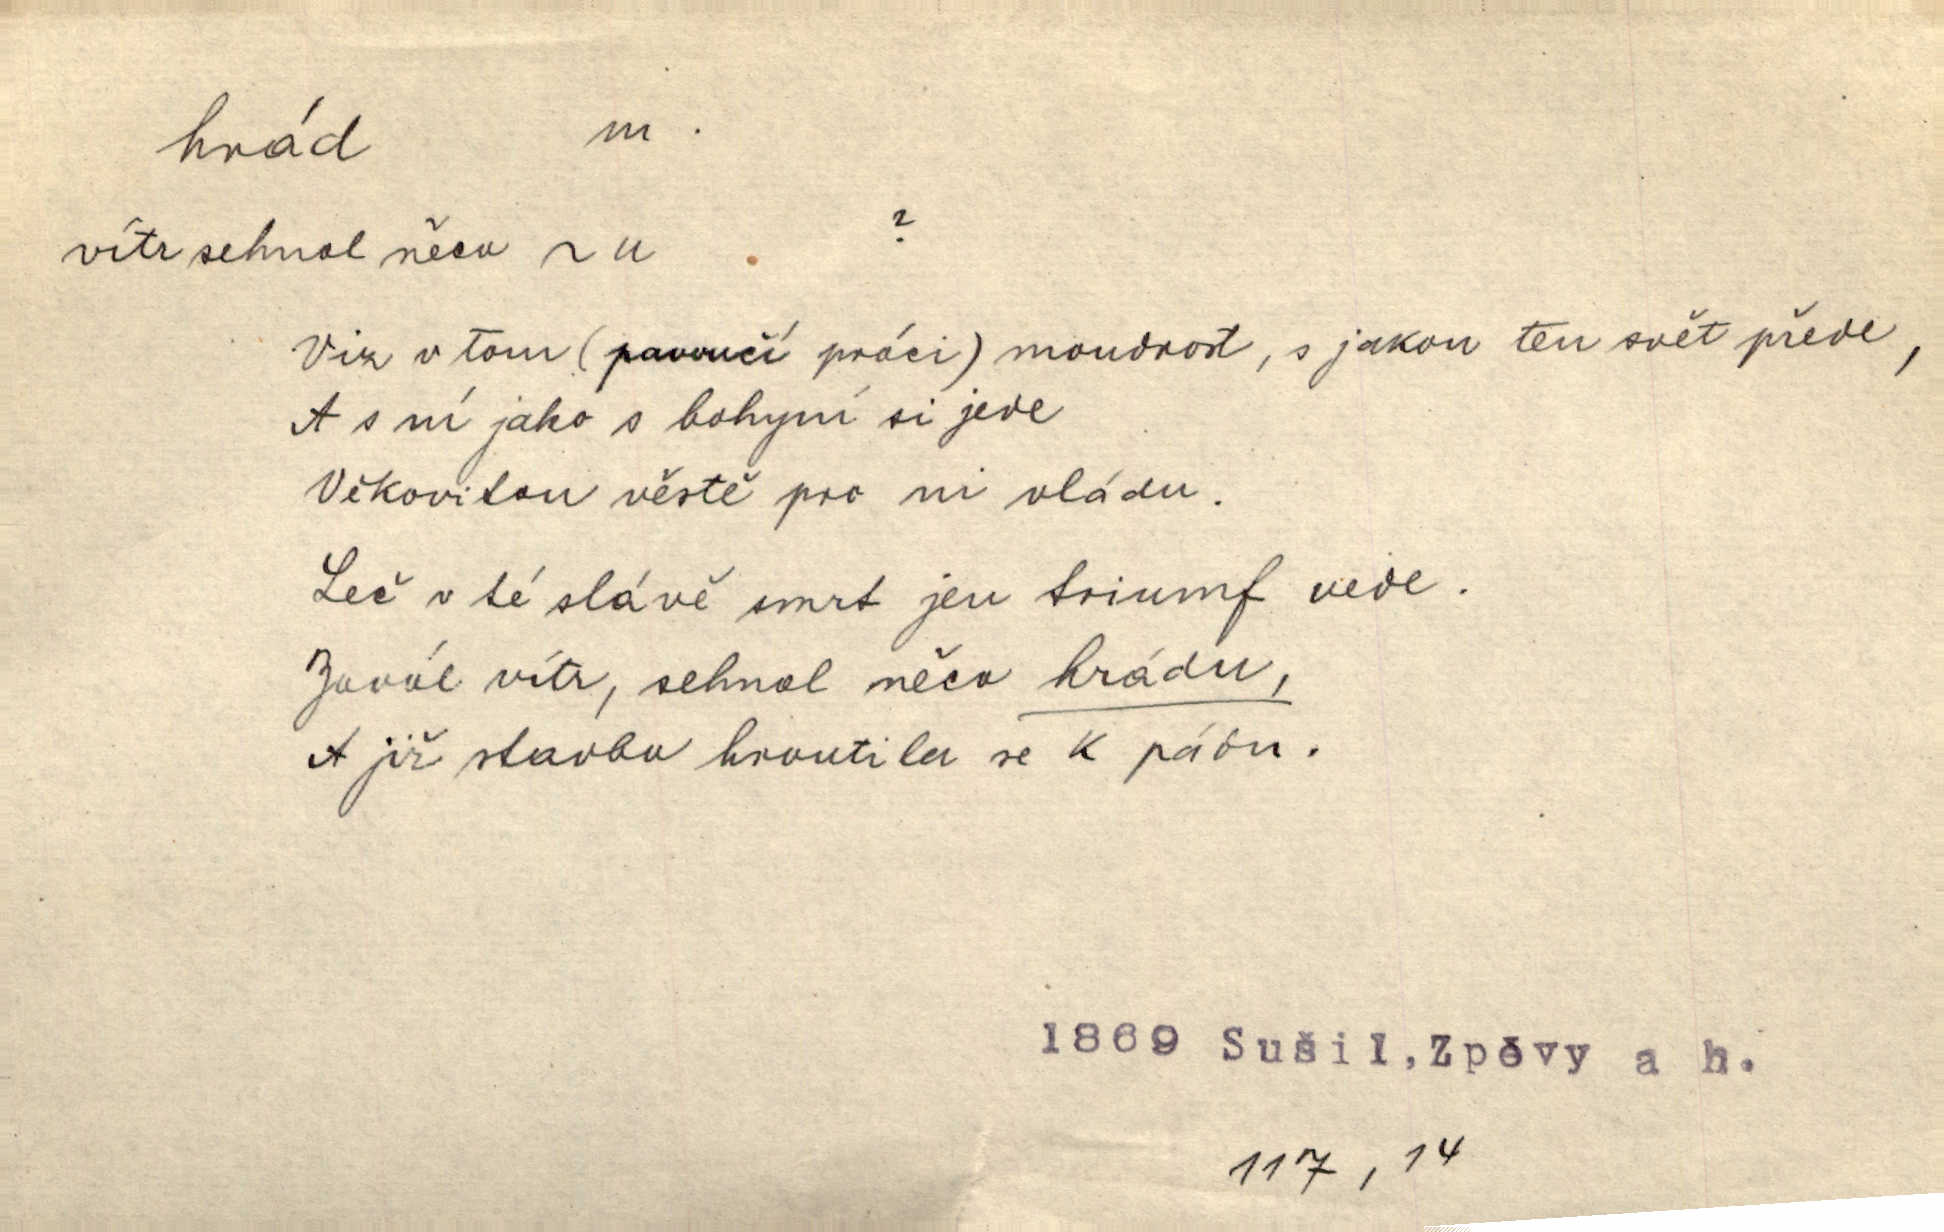 hrád m.
vítr sehnal něco ~ u ?
Viz v tom (pavoučí práci) moudrost, s jakou ten svět přede,
A s ní jako s bohyní si jede
Věkovitou věstě pro ni vládu.
Leč v té slávě smrt jen triumf vede.
Zavál vítr, sehnal něco hrádu,
A již stavba hroutila se k pádu.
1869 Sušil, Zpěvy a h.
117, 14